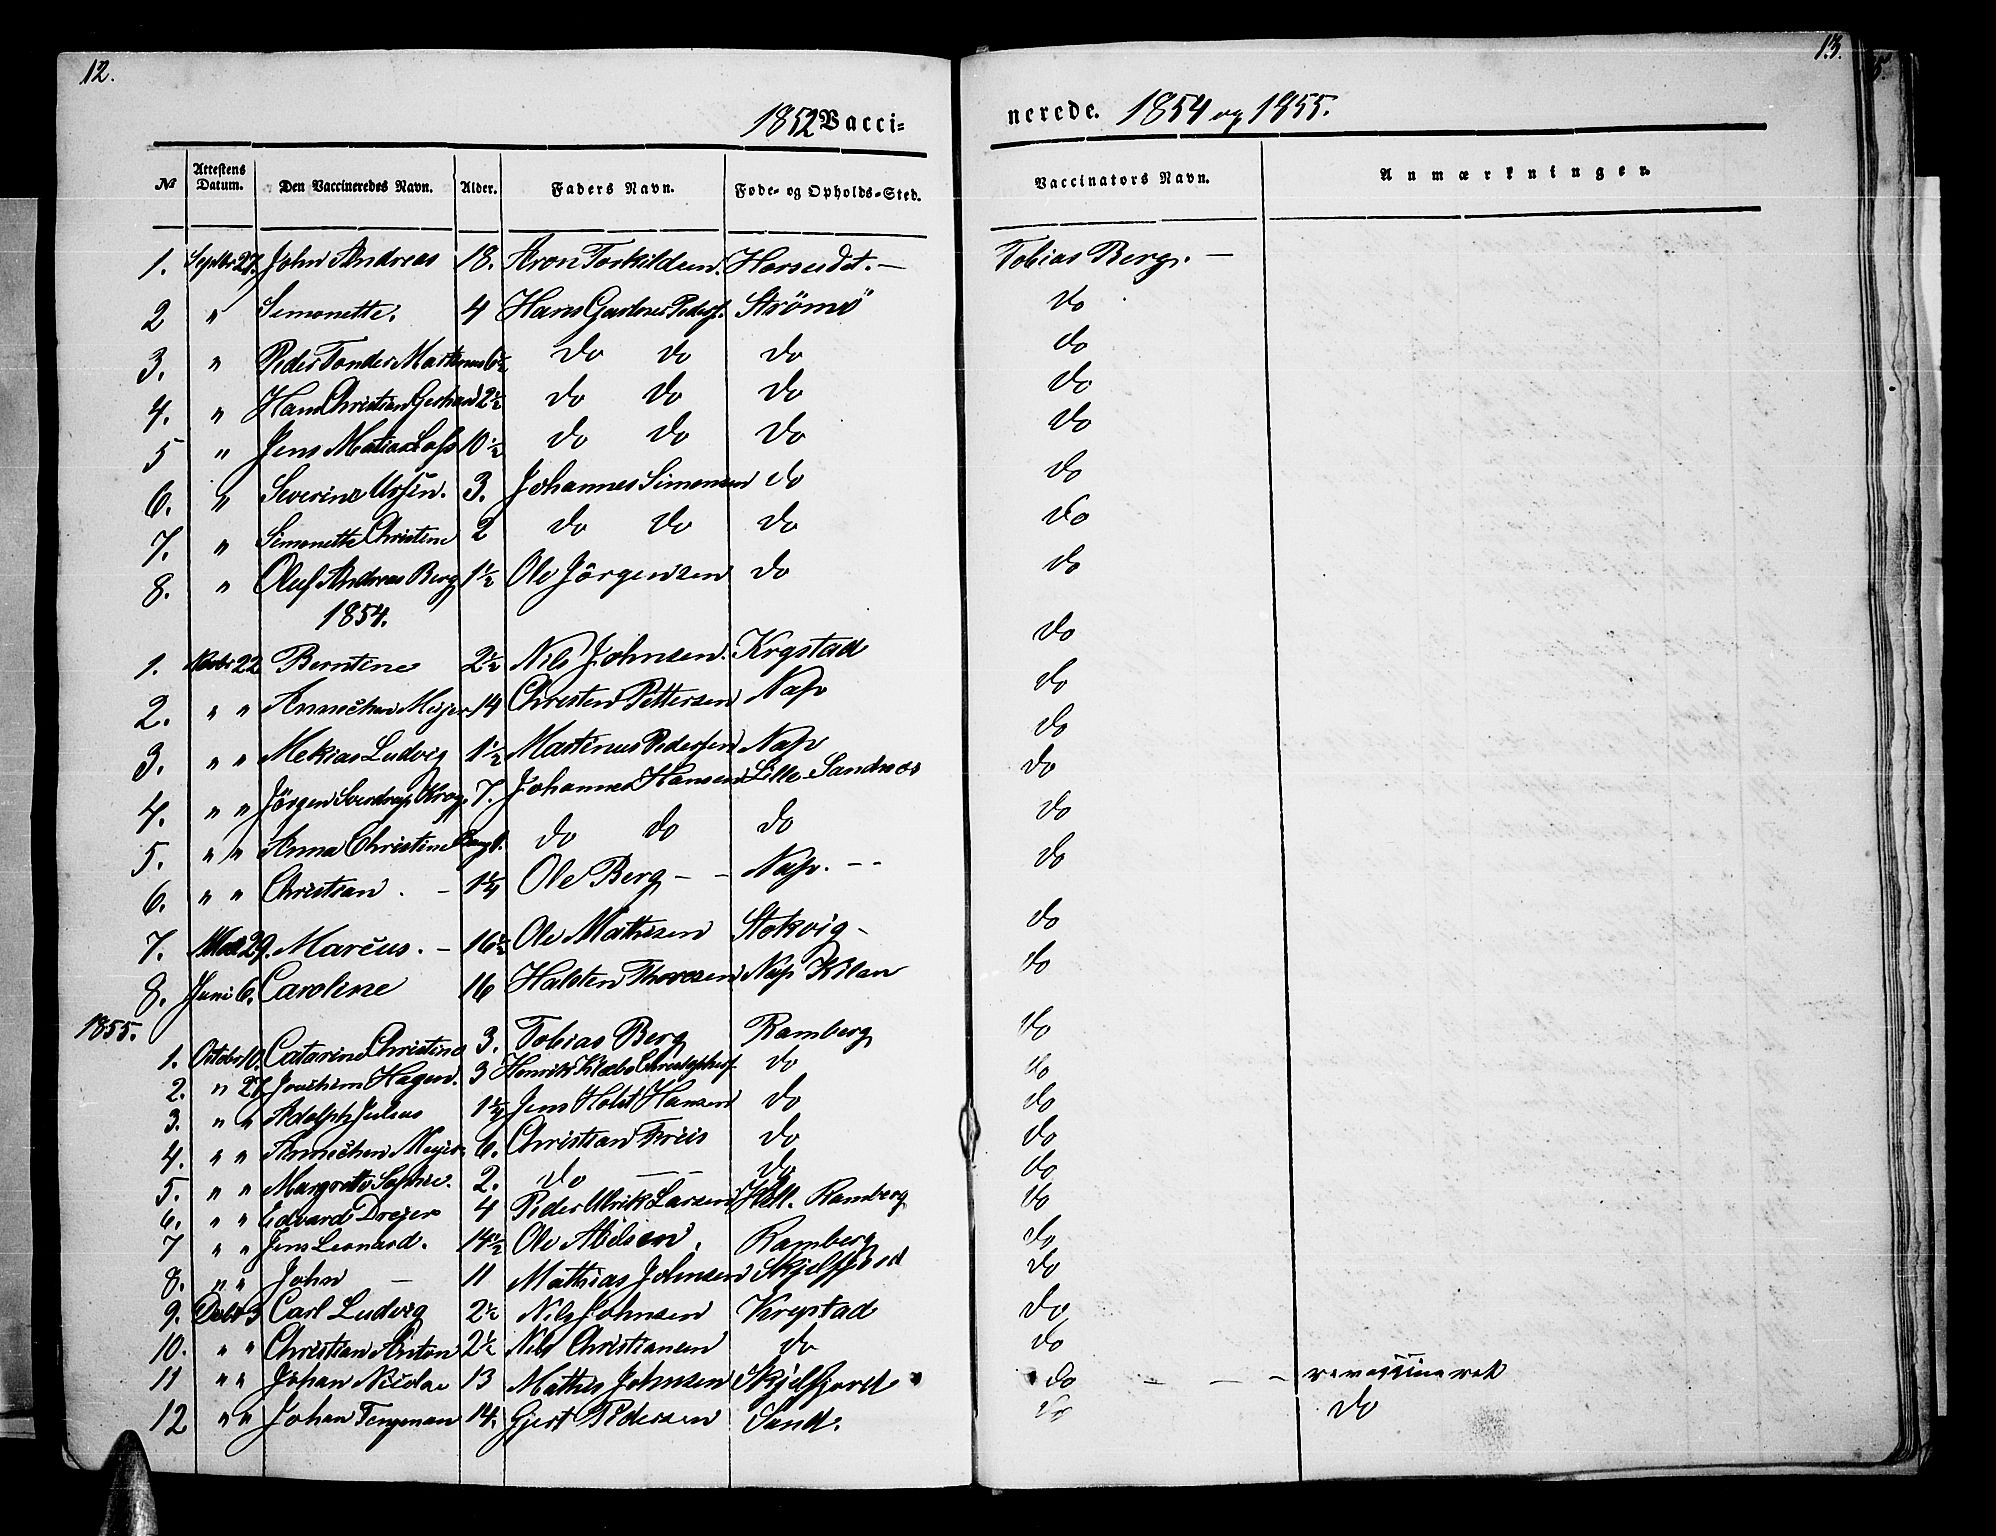 12.
13.
1852 Vacci-
nerede. 1854 og 1855.
№ Attestens Datum. Den Vaccineredes Navn. Alder. Faders Navn. Føde- og Opholds-Sted. Vaccinators Navn. Anmærkninger.
1. Septbr 27. John Andreas 18. Aron Torkildsen. Tobias Berg. —
2 " Simonette. 4 Hans Strömö do
3. " Peder Tonder 6½ do do do do
4. " Hans Christian Gerhard 2½ do do do do
5 " Jens 10½ do do do do
6. " Severine 3. Johannes Simonsen do do
7. " Simonette Christine 2 do do do do
8. " Oluf Andreas Berg 1½ Ole Jörgensen do do
1854.
1. 22 Berntine 2½ Nils Johnsen. Krystad do
2. " " Annichen Meyer 14 Christen Pettersen Nap do
3. " " Mekias Ludvig 1½ Martinus Pedersen Nap do
4. " " Jörgen Sverdrup Krog 7. Johannes Hansen Lille Sandnes do
5. " " Anna Christine do do do do
6. " " Christian. — 1¼ Ole Berg — — Nap. - - do
7. 29. Marcus. — 16½ Ole Mathisen Stokvig - do
8. Juni 6. Caroline 16 Halsten Thoresen Nap Kilan do
1855.
1. Octobr 10. Catarine Christine 3. Tobias Berg Ramberg do
2. " 27. Jochim Hagen. 3 Henrik do do
3. " " Adolph Julius 1¼ Jens Holst Hansen do do
4. " " Annichen Meyer 6. Christian Friis do do
5. " " Margrete Sophie. 2. do — — do do
6. " " Edvard Dreyer 4 Peder Ulrik Larsen Ramberg do
7 " " Jens Leonard. 14½ Ole Nilsen. Ramberg do
8. " " John — 11 Mathias Johnsen Skjelfjord do
9. Decbr 3 Carl Ludvig 2½ Nils Johnsen Krystad do
10. " " Christian Anton 2½ Nils Christiansen do do
11 " " Johan Nicolai 13 Mathis Johnsen Skjelfjord do — — — revaccineret
12 " " Johan 14. Gjert Pedersen Sand. do do